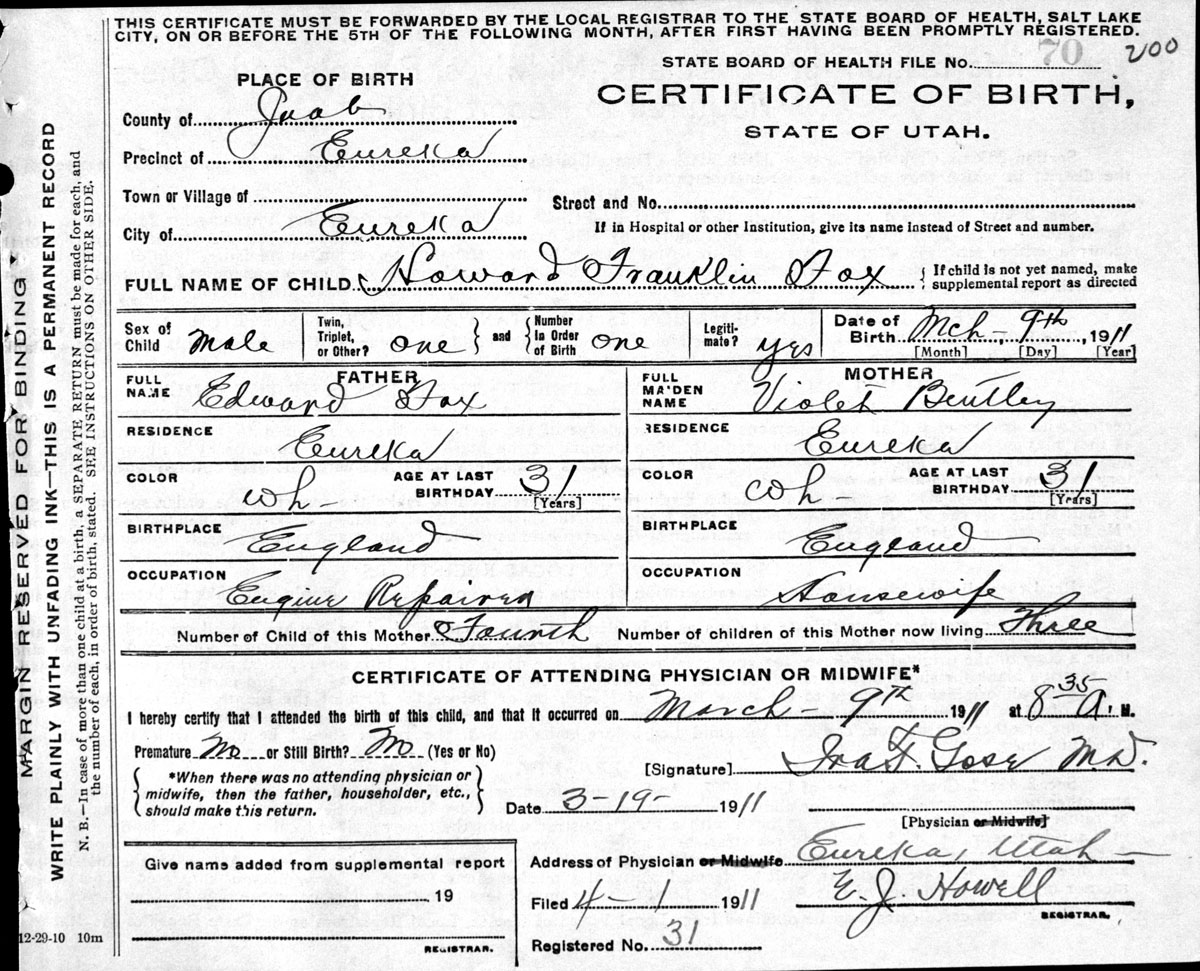 THIS CERTIFICATE MUST BE FORWARDED BY THE LOCAL REGISTRAR TO THE STATE BOARD OF HEALTH, SALT LAKE
CITY, ON OR BEFORE THE 5TH OF THE FOLLOWING MONTH, AFTER FIRST HAVING BEEN PROMPTLY REGISTERED.
STATE BOARD OF HEALTH FILE No. 70 200
PLACE OF BIRTH
CERTIFICATE OF BIRTH,
STATE OF UTAH.
County of Juab
Precinct of Eureka
Town or Village of
Street and No.
City of Eureka
If in Hospital or other Institution, give its name instead of Street and number.
FULL NAME OF CHILD Howard Franklin Fox { If child is not yet named, make
supplemental report as directed
Sex of Child Male Twin, Triplet, or Other? one } and { Number In Order of Birth one Legiti-mate? yes Date of Birth Mch - 9th, 1911
[Month] [Day] [Year]
FATHER
MOTHER
FULL NAME Edward Fox
FULL MAIDEN NAME Violet Bentley
RESIDENCE Eureka
RESIDENCE Eureka
COLOR wh- AGE AT LAST BIRTHDAY 31 [Years]
COLOR wh AGE AT LAST BIRTHDAY 31 [Years]
BIRTHPLACE England
BIRTHPLACE England
OCCUPATION Engine Repairer
OCCUPATION Housewife
Number of Child of this Mother Fourth Number of children of this Mother now living Three
CERTIFICATE OF ATTENDING PHYSICIAN OR MIDWIFE*
I hereby certify that I attended the birth of this child, and that it occurred on March - 9th 1911 at 8 35 A. M.
Premature No or Still Birth? No (Yes or No)
[Signature] Ira F. M.D.
{ *When there was no attending physician or
midwife, then the father, householder, etc.,
should make this return. }
Date 3-19- 1911
[Physician or Midwife]
Address of Physician or Midwife Eureka, Utah -
Give name added from supplemental report
19
REGISTRAR.
Filed 4-1 1911 E. J. Howell
REGISTRAR.
Registered No. 31
12-29-10 10m
MARGIN RESERVED FOR BINDING
WRITE PLAINLY WITH UNFADING INK—THIS IS A PERMANENT RECORD
N. B.—In case of more than one child at a birth, a SEPARATE RETURN must be made for each, and
the number of each, in order of birth, stated. SEE INSTRUCTIONS ON OTHER SIDE.